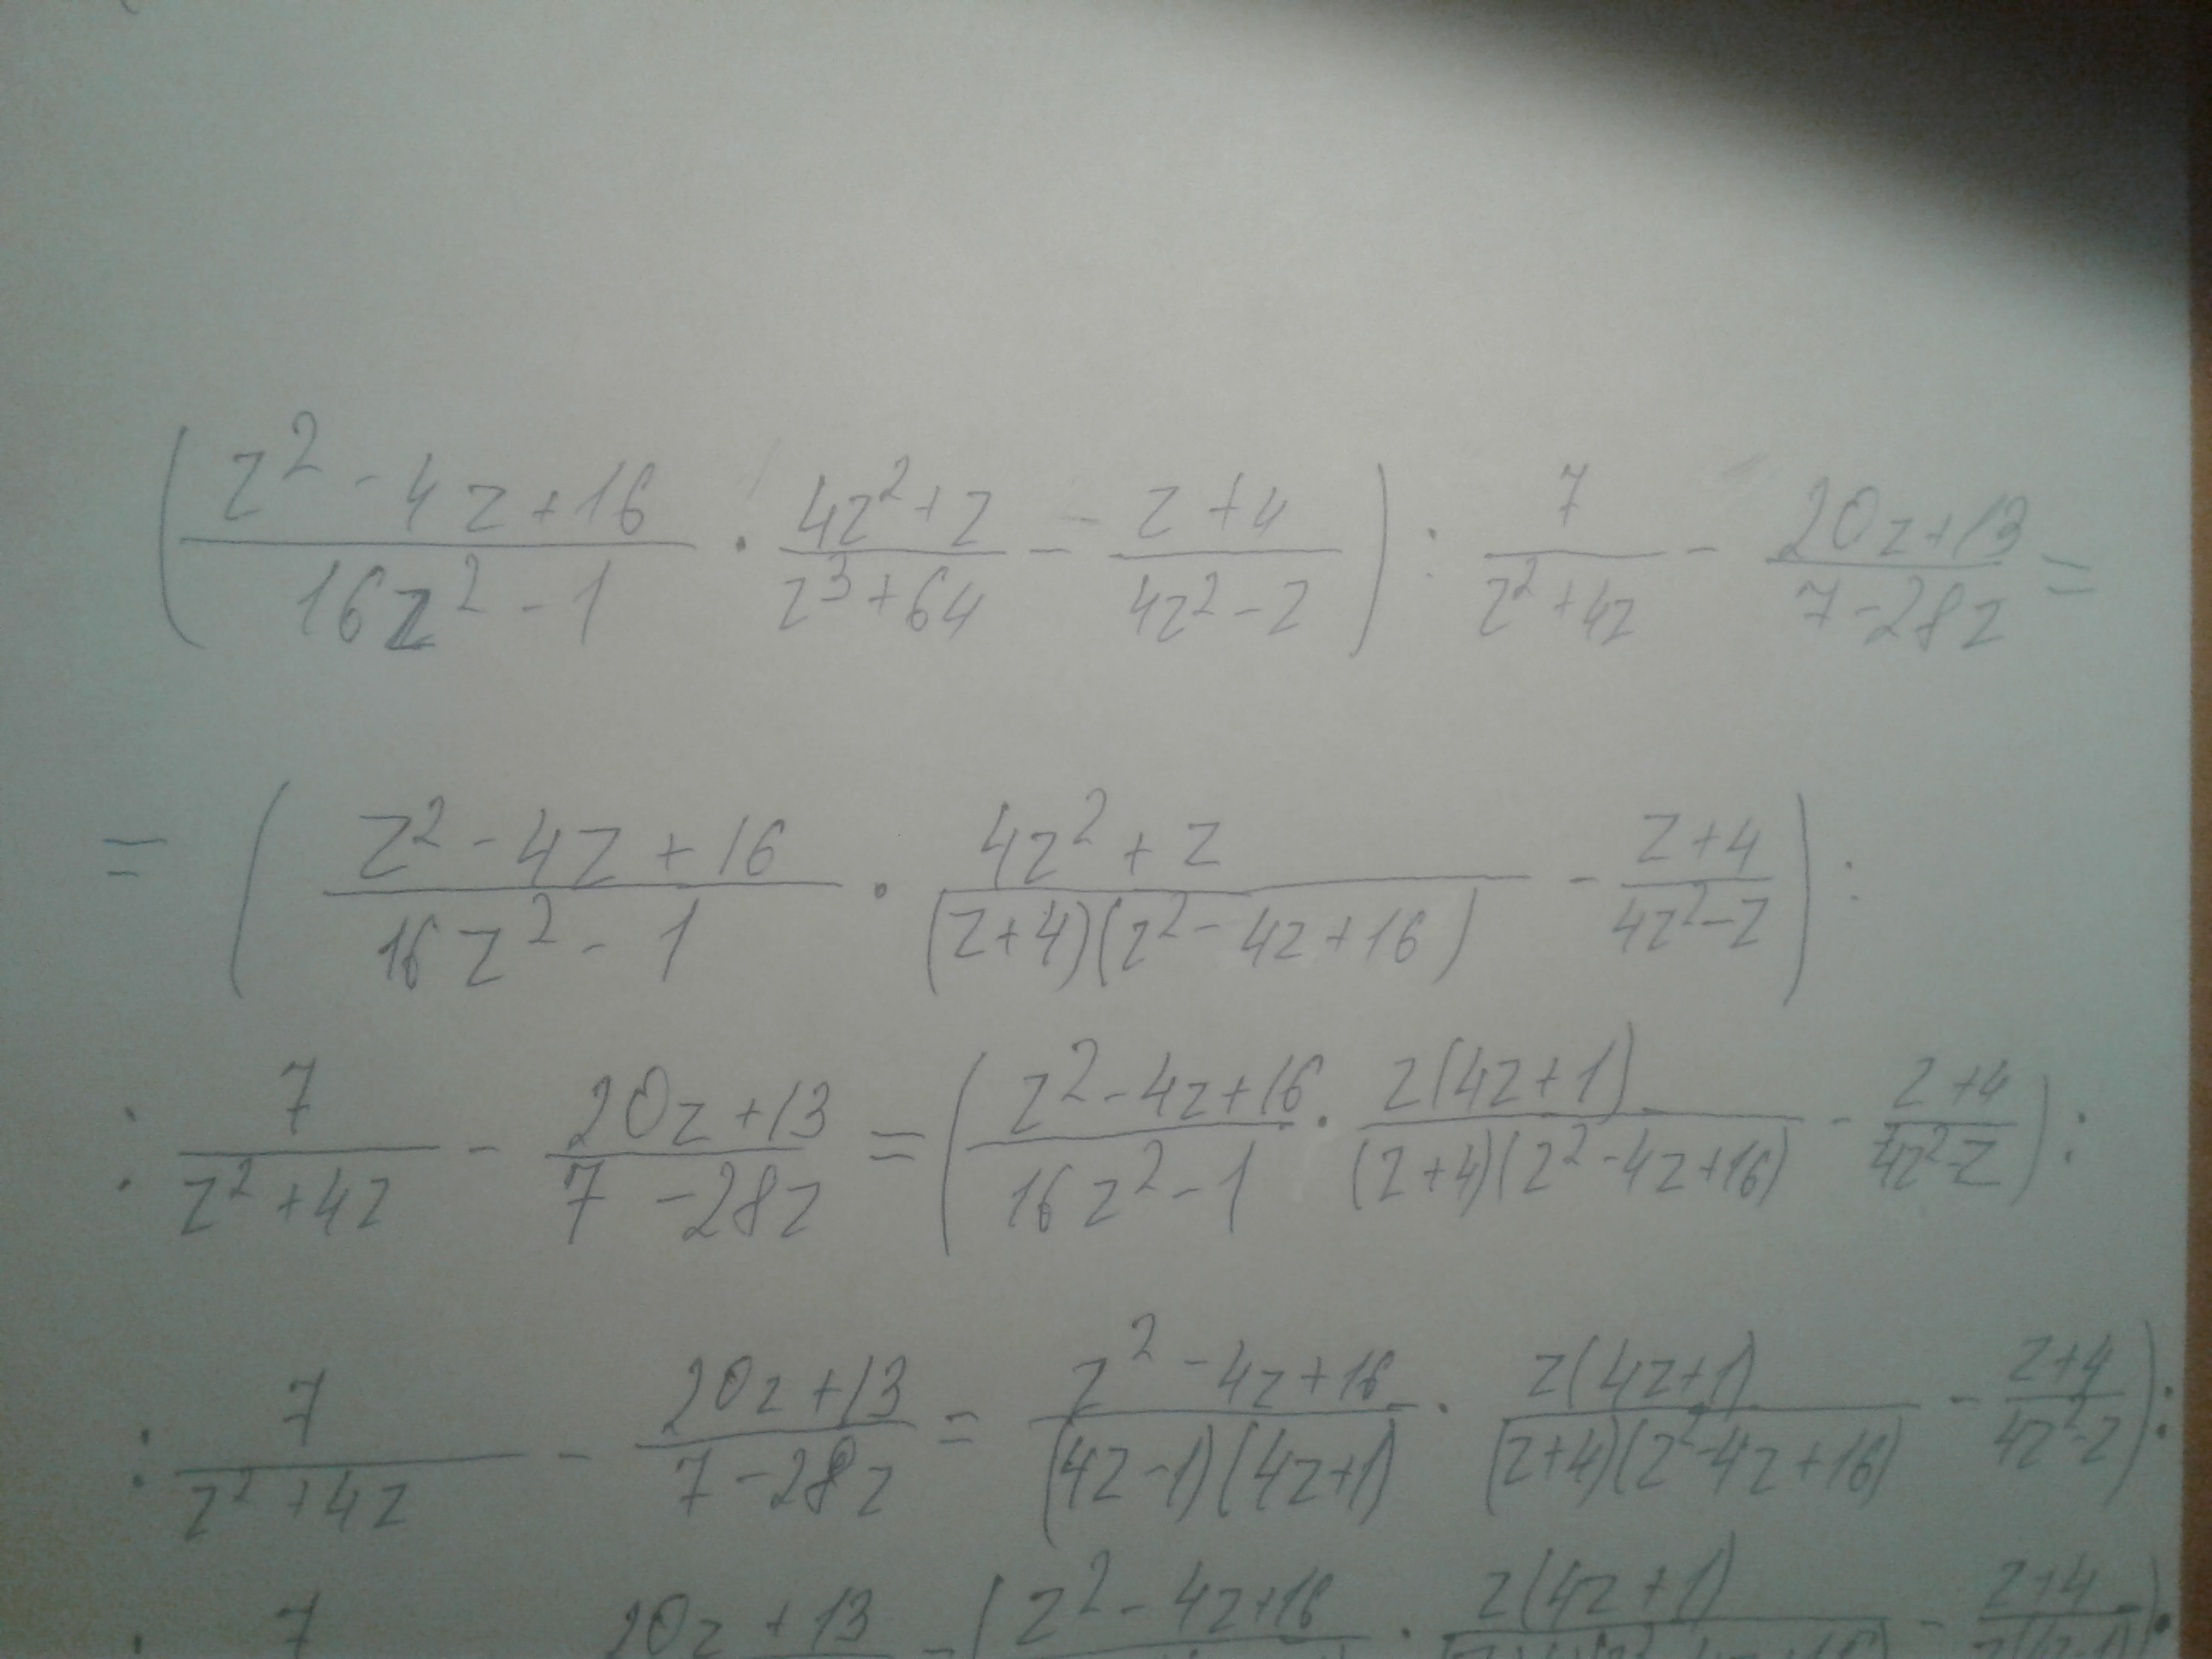 ( (z² - 4z + 16)/(16z² - 1) · (4z² + z)/(z³ + 64) - (z + 4)/(4z² - z) ) : 7/(z² + 4z) - (20z + 13)/(7 - 28z) =
= ( (z² - 4z + 16)/(16z² - 1) · (4z² + z)/((z+4)(z² - 4z + 16)) - (z + 4)/(4z² - z) ) :
: 7/(z² + 4z) - (20z + 13)/(7 - 28z) = ( (z² - 4z + 16)/(16z² - 1) · z(4z + 1)/((z+4)(z² - 4z + 16)) - (z + 4)/(4z² - z) ) :
: 7/(z² + 4z) - (20z + 13)/(7 - 28z) = (z² - 4z + 16)/((4z - 1)(4z + 1)) · z(4z + 1)/((z+4)(z² - 4z + 16)) - (z + 4)/(4z² - z) ) :
: 7 20z + 13 = ( z² - 4z + 16 · z(4z + 1) - z + 4 ) :